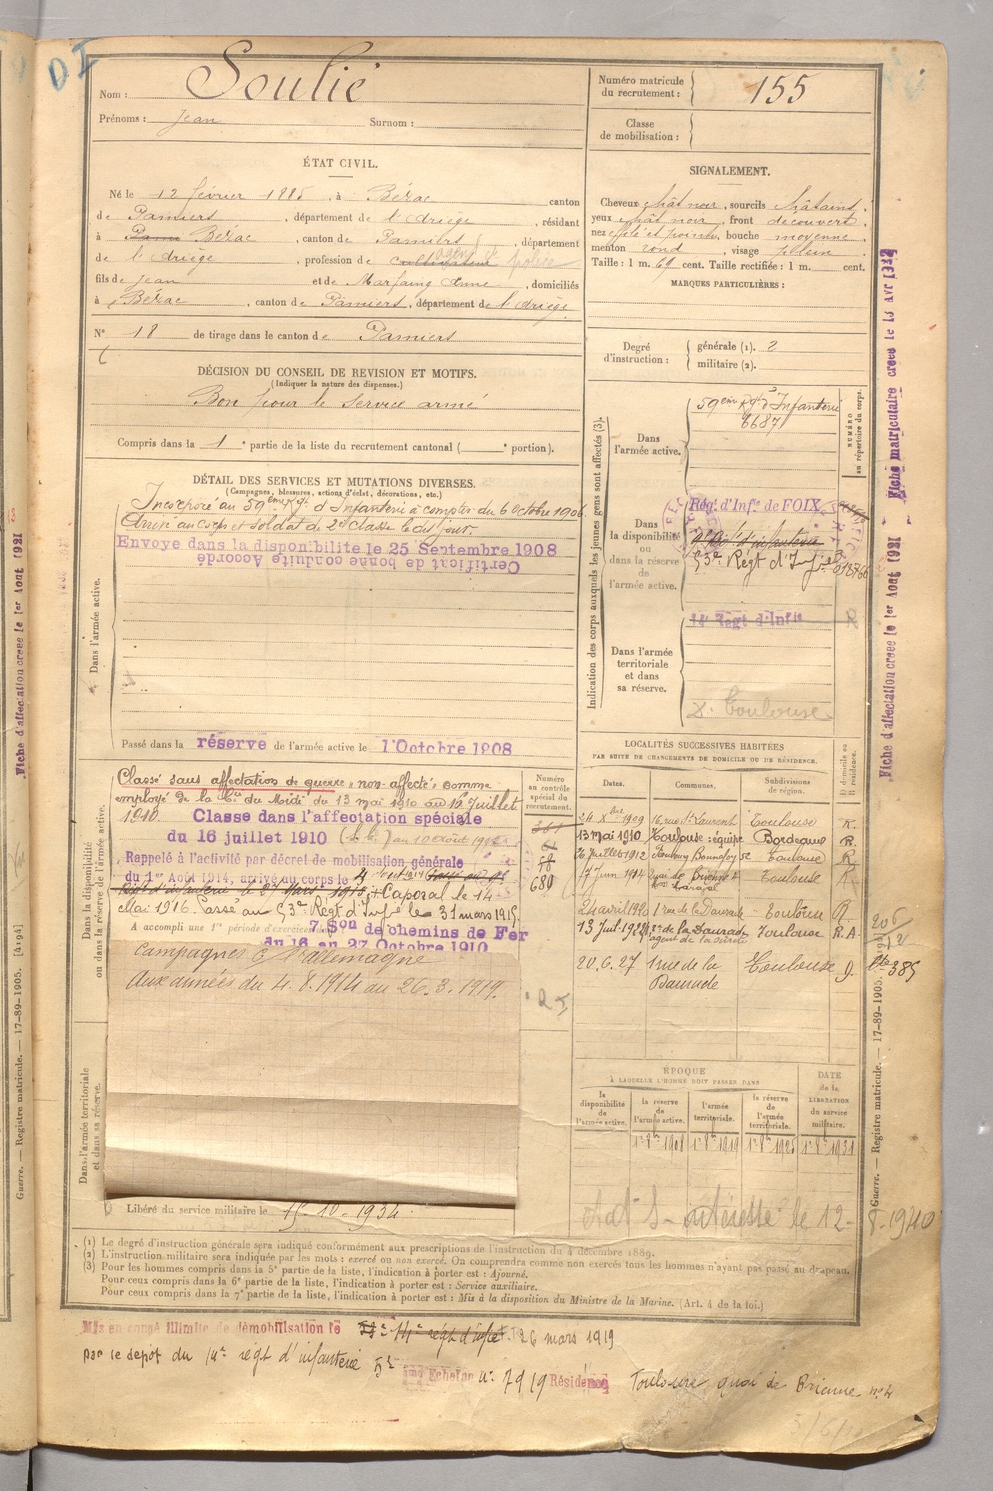 Nom : Soulié
Prénoms : Jean Surnom :
Numéro matricule du recrutement : 155
Classe de mobilisation :
ÉTAT CIVIL.
Né le 12 février 1885, à Bézac canton
de Pamiers, département de l'Ariège, résidant
à Bézac, canton de Pamiers, département
de l'Ariège, profession de cultivateur agent de police
fils de Jean et de Marfaing Anne, domiciliés
à Bézac, canton de Pamiers, département de l'Ariège
N° 18 de tirage dans le canton de Pamiers
SIGNALEMENT.
Cheveux chât noir, sourcils châtains,
yeux chât noir, front découvert
nez effilé et pointu, bouche moyenne
menton rond, visage plein
Taille : 1 m. 69 cent. Taille rectifiée : 1 m. cent.
MARQUES PARTICULIÈRES :
Degré d'instruction : générale (1). 2
militaire (2).
DÉCISION DU CONSEIL DE REVISION ET MOTIFS.
(Indiquer la nature des dispenses.)
Bon pour le service armé
Compris dans la 1e partie de la liste du recrutement cantonal ( e portion).
DÉTAIL DES SERVICES ET MUTATIONS DIVERSES.
(Campagnes, blessures, actions d'éclat, décorations, etc.)
Dans l'armée active.
Incorporé au 59ème Rgt d'Infanterie à compter du 6 octobre 1906
Arrivé au corps et soldat de 2e classe le dit jour.
Envoye dans la disponibilite le 25 Septembre 1908
Certificat de bonne conduite Accordé
Passé dans la réserve de l'armée active le 1 Octobre 1908
Indication des corps auxquels les jeunes gens sont affectés (3).
NUMÉRO au répertoire du corps.
Dans l'armée active.
59ème Rgt d'Infanterie
6687
Dans la disponibilité ou dans la réserve de l'armée active.
Rég. d'Infie de FOIX
53e Régt d'Infie
Dans l'armée territoriale et dans sa réserve.
14e Regt d'Infie
Toulouse
Dans la disponibilité ou dans la réserve de l'armée active.
Classé sans affectation de guerre : non affecté comme
employé de la Cie du Midi du 13 mai 1910 au 16 juillet
1910.
Classe dans l'affectation spéciale
du 16 juillet 1910
Rappelé à l'activité par décret de mobilisation générale
du 1er Août 1914, arrivé au corps le 4
Caporal le 14
Mai 1916. Passé au 53e Régt d'Infie le 31 mars 1919.
A accompli une 1re période d'exercices
7 Son de chemins de Fer
du 16 au 27 Octobre 1910
Campagnes C/ Allemagne
Aux années du 4.8.1914 au 26.3.1919.
Dans l'armée territoriale et dans sa réserve.
Libéré du service militaire le 15-10-1934
Numéro au contrôle spécial du recrutement.
58
680
LOCALITÉS SUCCESSIVES HABITÉES
PAR SUITE DE CHANGEMENTS DE DOMICILE OU DE RÉSIDENCE.
Dates. Communes. Subdivisions de région. domicile ou résidence.
24 Xbre 1909 16 rue St Laurent Toulouse R.
13 mai 1910 Toulouse : équipe Bordeaux R.
26 juillet 1912 Faubourg Bonnefoy 52 Toulouse R
7 juin 1914 Quai de Brienne 4 Toulouse R
24 avril 1920 1 rue de la Daurade Toulouse R.
13 Juil 1922 rue de la Daurade agent de la sûreté Toulouse R.A
20.6.27 1 rue de la Daurade Toulouse D.
385
ÉPOQUE
À LAQUELLE L'HOMME DOIT PASSER DANS
DATE de la LIBÉRATION du service militaire.
la disponibilité de l'armée active.
la réserve de l'armée active.
l'armée territoriale.
la réserve de l'armée territoriale.
1er 8bre 1908 1er 8bre 1919 1er 8bre 1925 1er 8bre 1931
intéressé le 12-8-1940
(1) Le degré d'instruction générale sera indiqué conformément aux prescriptions de l'instruction du 4 décembre 1889.
(2) L'instruction militaire sera indiquée par les mots : exercé ou non exercé. On comprendra comme non exercés tous les hommes n'ayant pas passé au drapeau.
(3) Pour les hommes compris dans la 5e partie de la liste, l'indication à porter est : Ajourné.
Pour ceux compris dans la 6e partie de la liste, l'indication à porter est : Service auxiliaire.
Pour ceux compris dans la 7e partie de la liste, l'indication à porter est : Mis à la disposition du Ministre de la Marine. (Art. 4 de la loi.)
Mis en congé illimité de démobilisation le 26 mars 1919
par le dépôt du 14e régt d'infanterie
Echelon n° 7919 Résidence Toulouse quai de Brienne n° 4
Fiche matriculaire creee le 13 Avr 1932
Fiche d'affectation creee le 1er Aout 1931
Guerre. — Registre matricule. — 17-89-1905.
Fiche d'affectation creee le 1er Aout 1931
Guerre. — Registre matricule. — 17-89-1905. [A194]